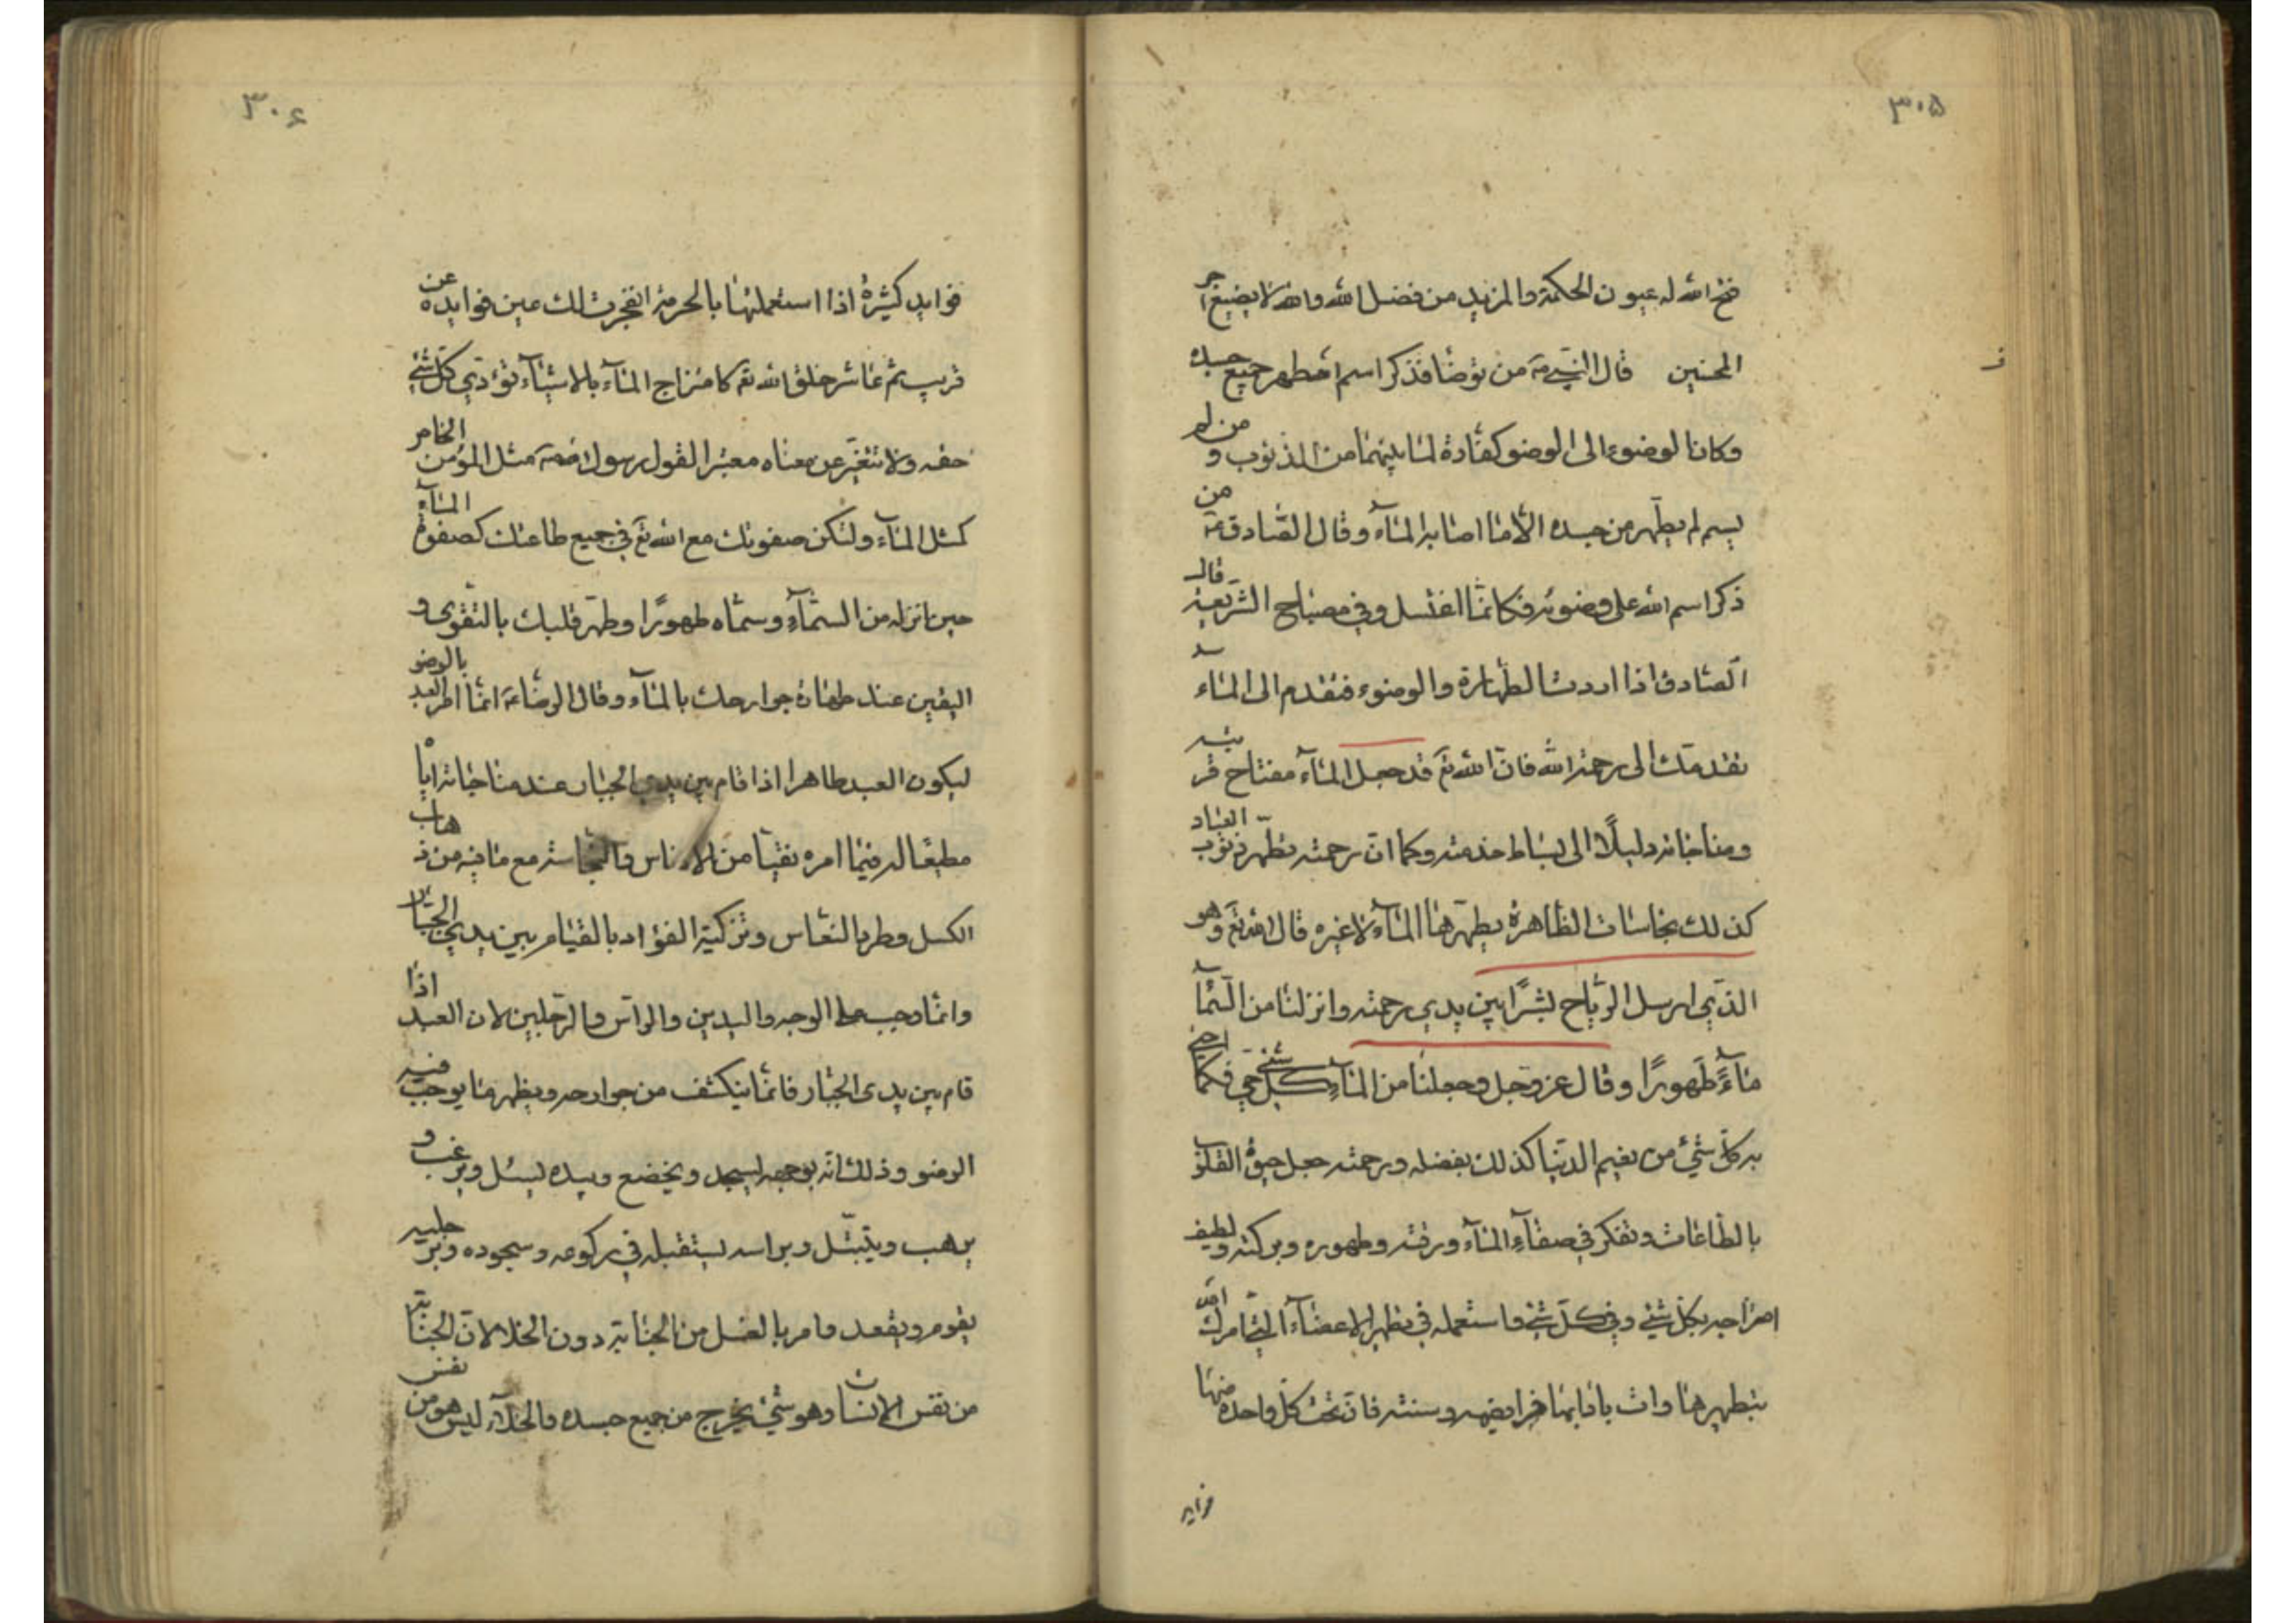 ٣٠٥
فتح الله له عيون الحكمة والمزيد من فضل الله والله لا يضيع اجر
المحسنين قال النبي ص من توضأ فذكر اسم الله طهر جميع جسده
وكان الوضوء الى الوضو كفارة لما بينهما من الذنوب و من لم
يسم لم يطهر من جسده الا ما اصابه المآء وقال الصادق ع من
ذكر اسم الله على وضوئه فكانما اغتسل وفي مصباح الشريعة قال
الصادق اذا اردت الطهارة والوضوء فتقدم الى المآء
تقدمك الى رحمة الله فان الله تع قد جعل المآء مفتاح قربته
ومناجاته دليلًا الى بساط خدمته وكما ان رحمته تطهر ذنوب العباد
كذلك نجاسات الظاهرة يطهرها المآء لا غيره قال الله تع وهو
الذي ارسل الرياح بشرًا بين يدي رحمته وانزلنا من السمآء
مآءً طهورًا وقال عز وجل وجعلنا من المآء كل شئ حي فكما احيى
به كل شئ من نعيم الدنيا كذلك بفضله ورحمته جعل حيوة القلوب
بالطاعات وتفكر في صفآء المآء ورقته وطهوره وبركته ولطيف
امتزاجه بكل شئ وفي كل شئ واستعمله في تطهير الاعضآء التي امرك الله
بتطهيرها وات بادابها فرايضه وسننه فان تحت كل واحدة منها
فوايد
٣٠۶
فوايد كثيرة اذا استعملتها بالحرمة انفجرت لك عين فوايده عن
قريب ثم عاشر خلق الله تع كامتزاج المآء بالاشيآء تؤدي كل شئ
حقه ولا تتغير عن معناه معتبرا لقول رسول الله ص مثل المؤمن الخاص
كمثل المآء ولتكن صفوتك مع الله تع في جميع طاعتك كصفوة المآء
حين انزله من السمآء وسماه طهورًا وطهر قلبك بالتقوى و
اليقين عند طهارة جوارحك بالمآء وقال الرضا ع انما امر العبد بالوضو
ليكون العبد طاهرا اذا قام بين يدي الجبار عند مناجاته اياه
مطيعا له فيما امره نقيا من الادناس والنجاسة مع ما فيه من ذهاب
الكسل وطرد النعاس وتزكية الفؤاد بالقيام بين يدي الجبار
وانما وجب على الوجه واليدين والراس والرجلين لان العبد اذا
قام بين يدي الجبار فانما ينكشف من جوارحه ويظهر ما يوجب فيه
الوضو وذلك انه بوجهه يسجد ويخضع وبيده يسئل ويرغب و
يرهب ويتبتل وبراسه يستقبله في ركوعه وسجوده وبرجليه
يقوم ويقعد وامر بالغسل من الجنابة دون الخلا لان الجنابة
من نفس الانسان وهو شئ يخرج من جميع جسده والخلآء ليس هو من نفس